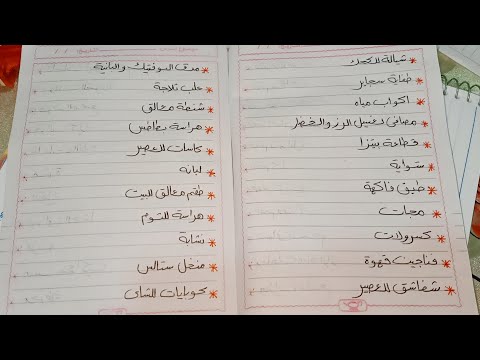 شيالة للكحك
طفاية سجاير
اكواب مياه
مصافى لغسيل الرز والخضار
قطاعة بيتزا
شواية
طبق فاكهة
مجات
كسرولات
فناجين قهوة
شفاشق للعصير
مدق البوفتيك والبانية
علب تلاجة
شنطة معالق
هراسة بطاطس
كاسات للعصير
لبانه
طقم معالق للبيت
هراسة للثوم
نشابة
منخل ستالس
كوبايات للشاى